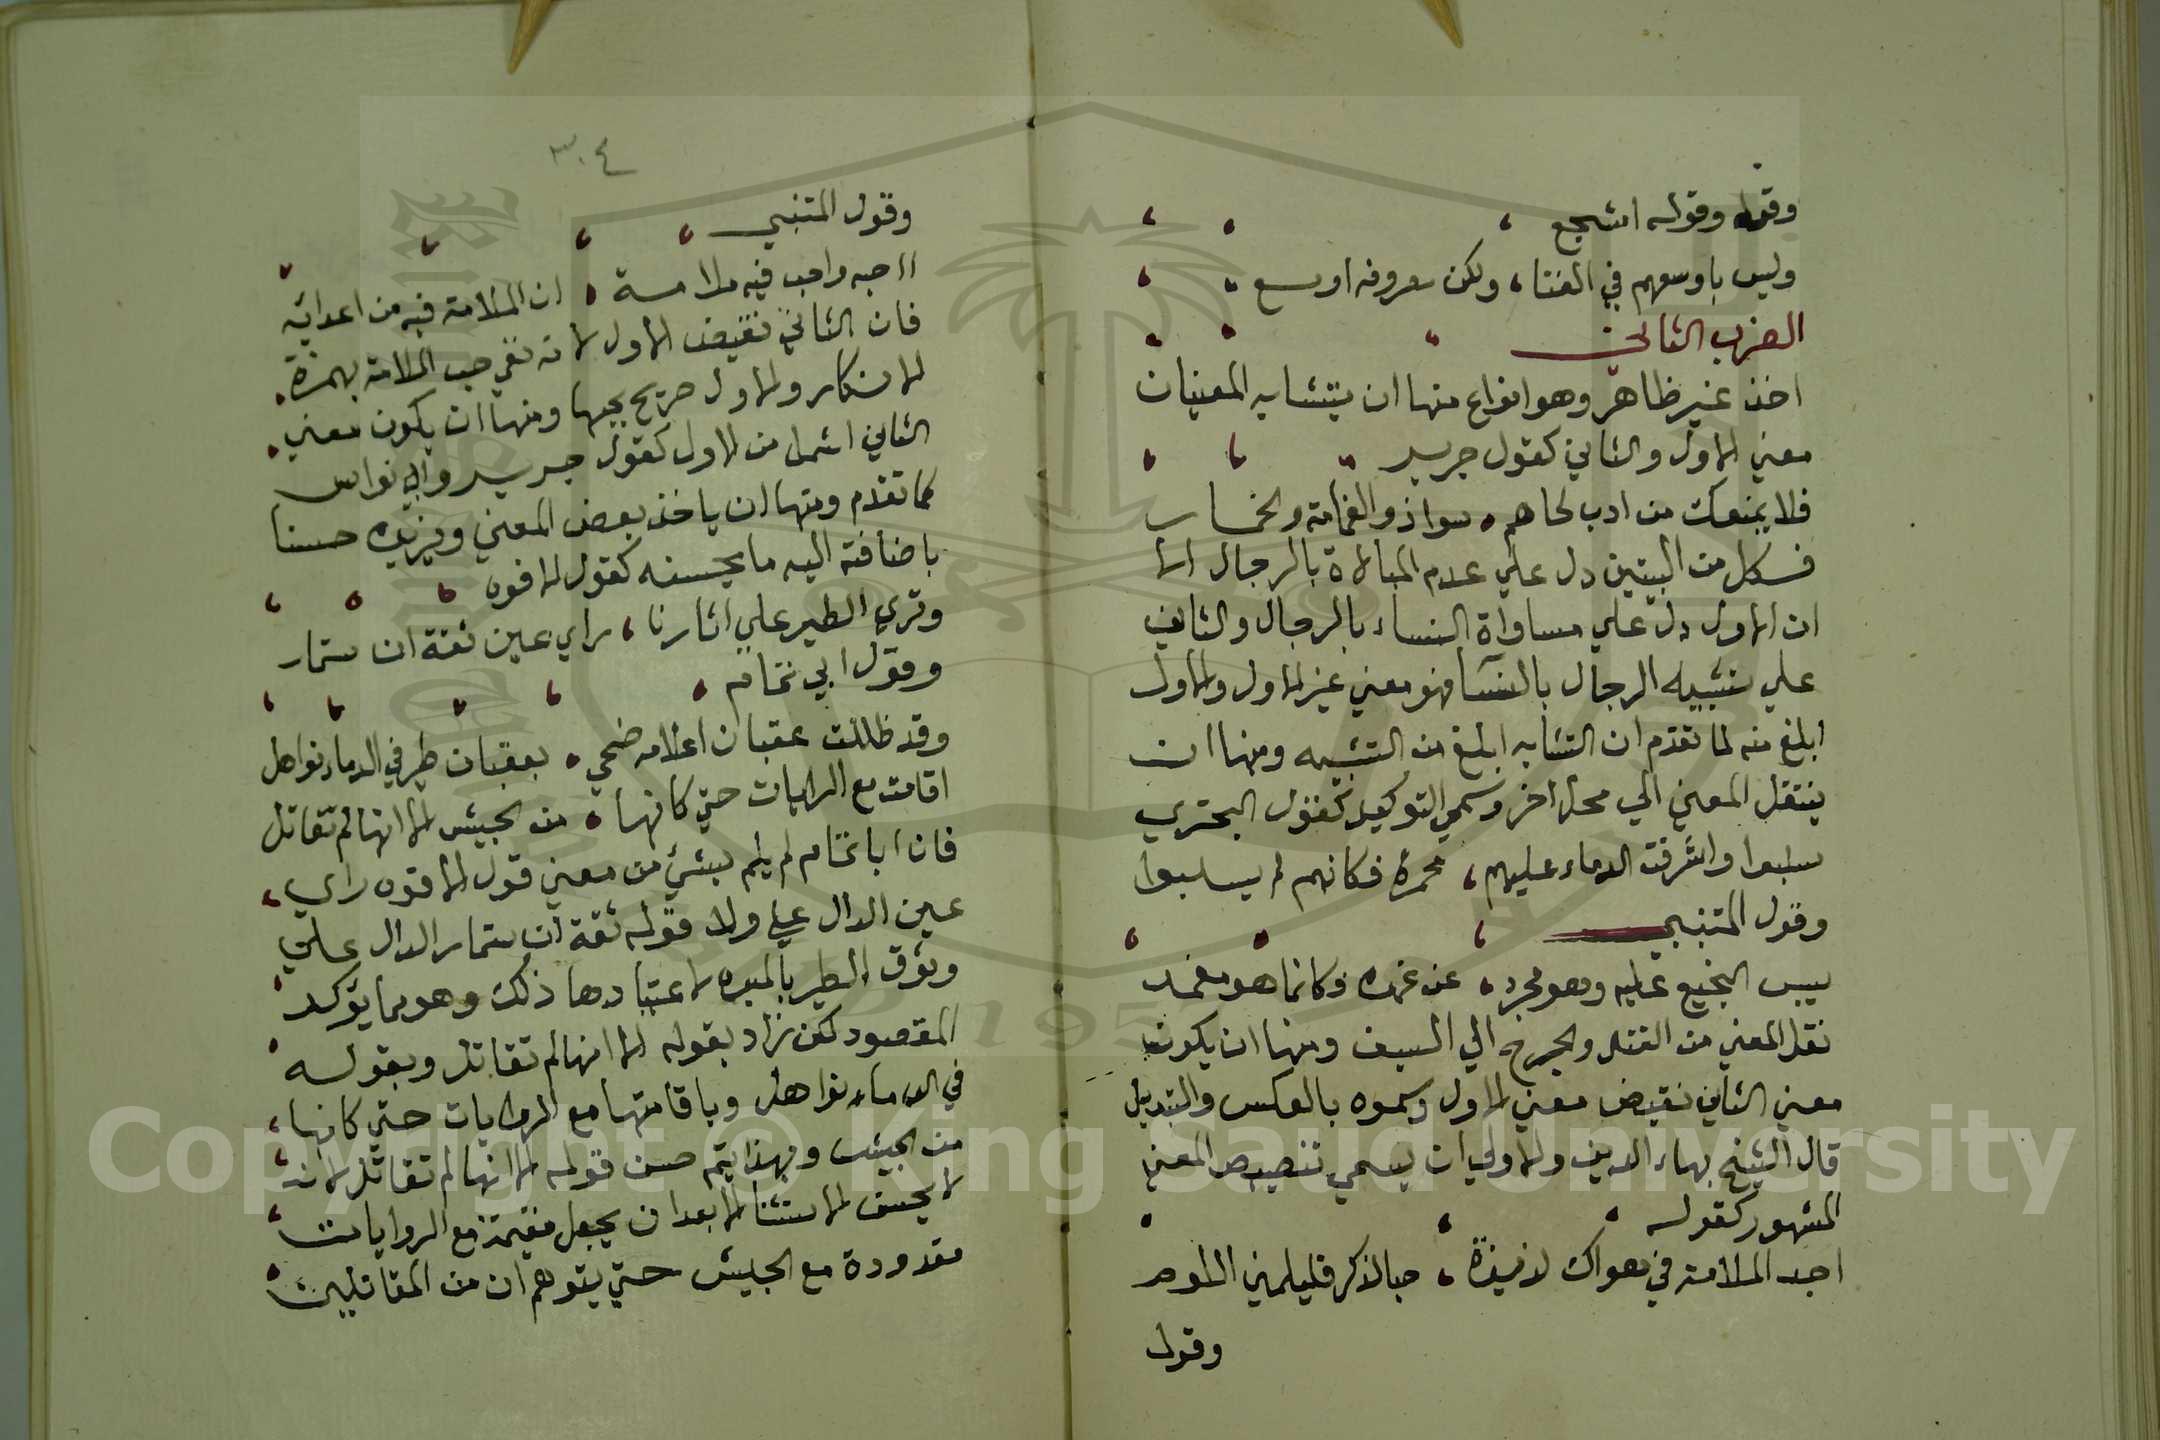 وقوله وقوله اشجع
وليس باوسعهم في الغنا، ولكن معروفه اوسع
الضرب الثاني
اخذ غير ظاهر وهو انواع منها ان يتشابه المعنيان
معني الاول والثاني كقول جرير
فلا يمنعك من ارب لحاهم سواء ذو العمامة والخمار
فكل من البيتين دل علي عدم المبالاة بالرجال الا
ان الاول دل علي مساواة النساء بالرجال والثاني
علي تشبيه الرجال بالنسآ فهو معني غير الاول والاول
ابلغ منه لما تقدم ان التشابه ابلغ من التشبيه ومنها ان
ينتقل المعني الي محل اخر وسمي التوكيد كقول البحتري
سلبوا واشرقت الدماء عليهم، محمرة فكانهم لم يسلبوا
وقول المتنبي
يبس النجيع عليه وهو مجرد عن غمده وكانما هو مغمد
نقل المعني من القتلي والجرحي الي السيف ومنها ان يكون
معني الثاني نقيض معني الاول وسموه بالعكس والتبديل
قال الشيخ بهاء الدين والاولي ان يسمي تنصيص المعني
المشهور كقوله
اجد الملامة في هواك لذيذة، حبا لذكرك فليلمني اللوم
وقول
٣٠٤
وقول المتنبي
ااحبه واحب فيه ملامة ان الملامة فيه من اعدائه
فان الثاني نقيض الاول لانه نفي حب الملامة بهمزة
الانكار والاول صريح بحبها ومنها ان يكون معني
الثاني اشمل من الاول كقول جرير وابي نواس
كما تقدم ومنها ان ياخذ بعض المعني ويزيده حسنا
باضافته اليه ما يحسنه كقول الافوه
وتري الطير علي اثارنا، راي عين ثقة ان ستمار
وقول ابي تمام
وقد ظللت عقبان اعلامه ضحي بعقبان طير في الدماء نواهل
اقامت مع الرايات حتي كانها من الجيش الا انها لم تقاتل
فان ابا تمام لم يلم بشئ من معني قول الافوه راي
عين الدال علي ولا قوله ثقة ان ستمار الدال علي
وثوق الطير بالميره لاعتيادها ذلك وهو مما يؤكد
المقصود لكن زاد بقوله الا انها لم تقاتل وبقوله
في الدماء نواهل وباقامتها مع الرايات حتي كانها
من الجيش وبهذا يتم حسن قوله الا انها لم تقاتل لانه
لا يحسن الاستثنا الا بعد ان يجعل مقيمة مع الروايات
معدودة مع الجيش حتي يتوهم ان من المقاتلين
Copyright © King Saud University
1957